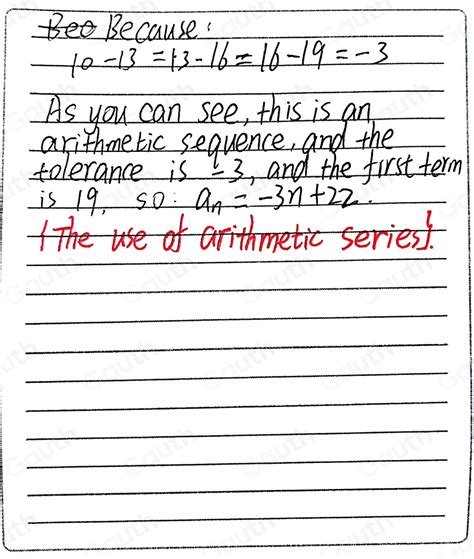 Beo Because:
10-13=13-16=16-19=-3
As you can see, this is an
arithmetic sequence, and the
tolerance is -3, and the first term
is 19, so: aₙ=-3n+22.
{The use of arithmetic series}.
Gauth